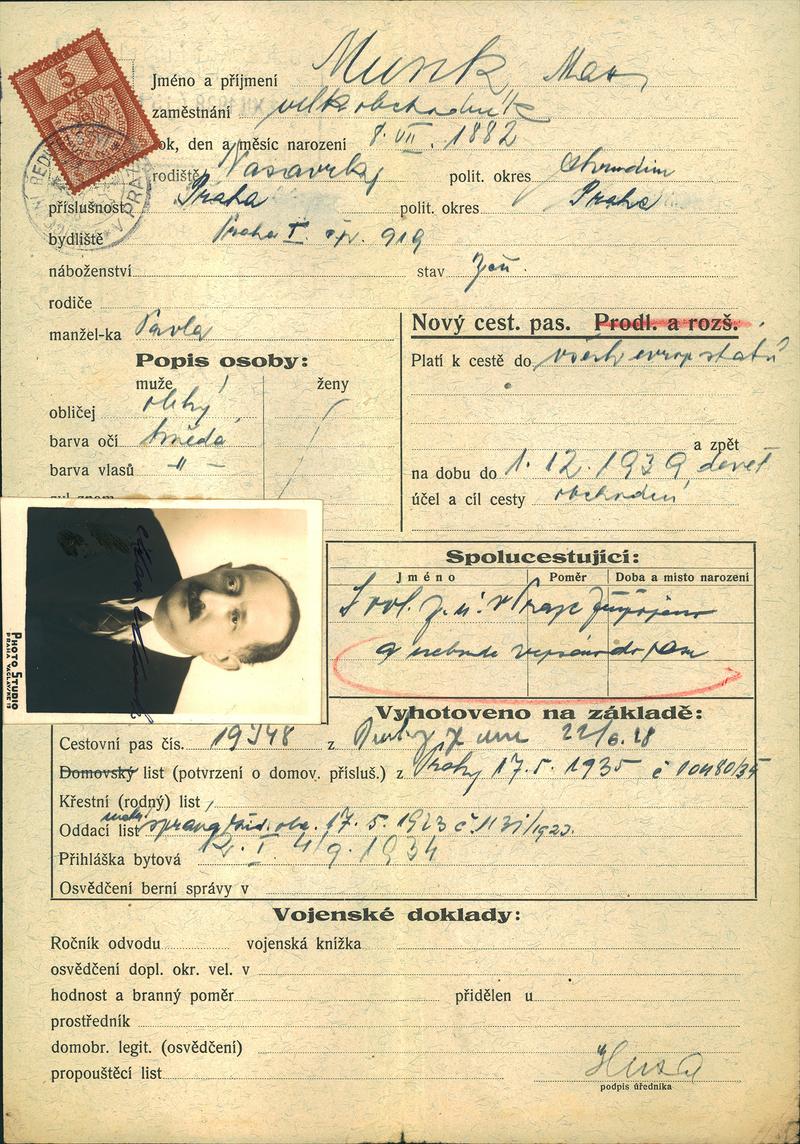 5
Kč
Jméno a příjmení Munk Max
zaměstnání velkoobchodník
rok, den a měsíc narození 8. VII. 1882
rodiště Nasavrky polit. okres Chrudim
příslušnost Praha polit. okres Praha
V PRAZE
bydliště Praha I. čp. 919
náboženství stav žen.
rodiče
manžel-ka Pavla
Nový cest. pas. Prodl. a rozš.
Platí k cestě do všech evrop států
Popis osoby:
muže ženy
obličej
barva očí hnědá
barva vlasů " –
a zpět
na dobu do 1. 12. 1939
účel a cíl cesty obchodní
Spolucestující:
Jméno Poměr Doba a místo narození
a nebude do pasu
PHOTO STUDIO
PRAHA VÁCLAVSKÉ
Vyhotoveno na základě:
Cestovní pas čís. z 22/6. 28
Domovský list (potvrzení o domov. přísluš.) z Prahy 17. 5. 1935 č 10480/35
Křestní (rodný) list
Oddací list 17. 5. 1923 č.
Přihláška bytová 4/9. 1934
Osvědčení berní správy v
Vojenské doklady:
Ročník odvodu vojenská knížka
osvědčení dopl. okr. vel. v
hodnost a branný poměr přidělen u
prostředník
domobr. legit. (osvědčení)
propouštěcí list
podpis úředníka